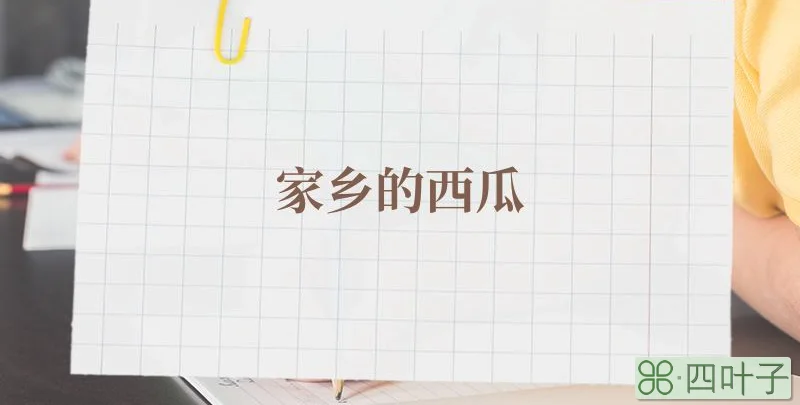 家乡的西瓜
四叶子